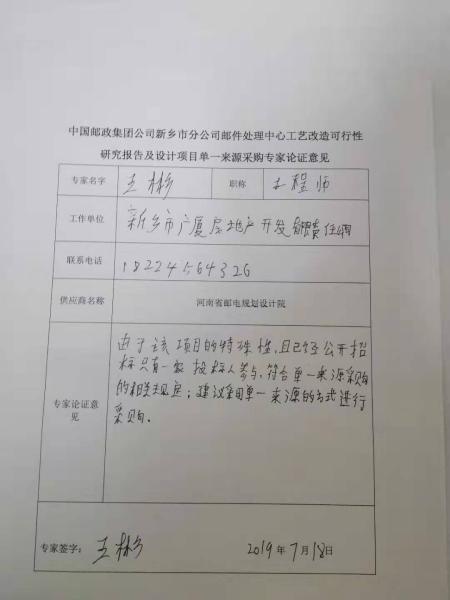 中国邮政集团公司新乡市分公司邮件处理中心工艺改造可行性
研究报告及设计项目单一来源采购专家论证意见
专家名字 王彬 职称 工程师
工作单位 新乡市广厦房地产开发有限责任公司
联系电话 18224564326
供应商名称 河南省邮电规划设计院
专家论证意
见
由于该项目的特殊性,且已经公开招
标只有一家投标人参与,符合单一来源采购
的相关规定;建议采用单一来源的方式进行
采购.
专家签字: 王彬 2019年7月18日